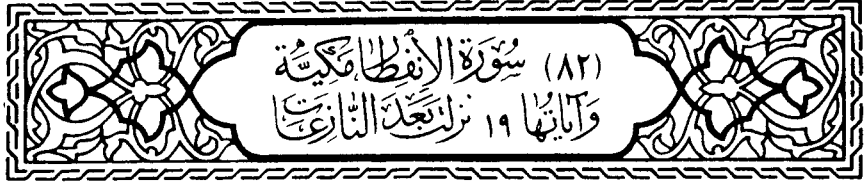 (٨٢) سُورَةُ الإِنفِطَارِ مَكِّيَّة
وَآيَاتُهَا ١٩ نَزَلَتْ بَعْدَ النَّازِعَاتِ